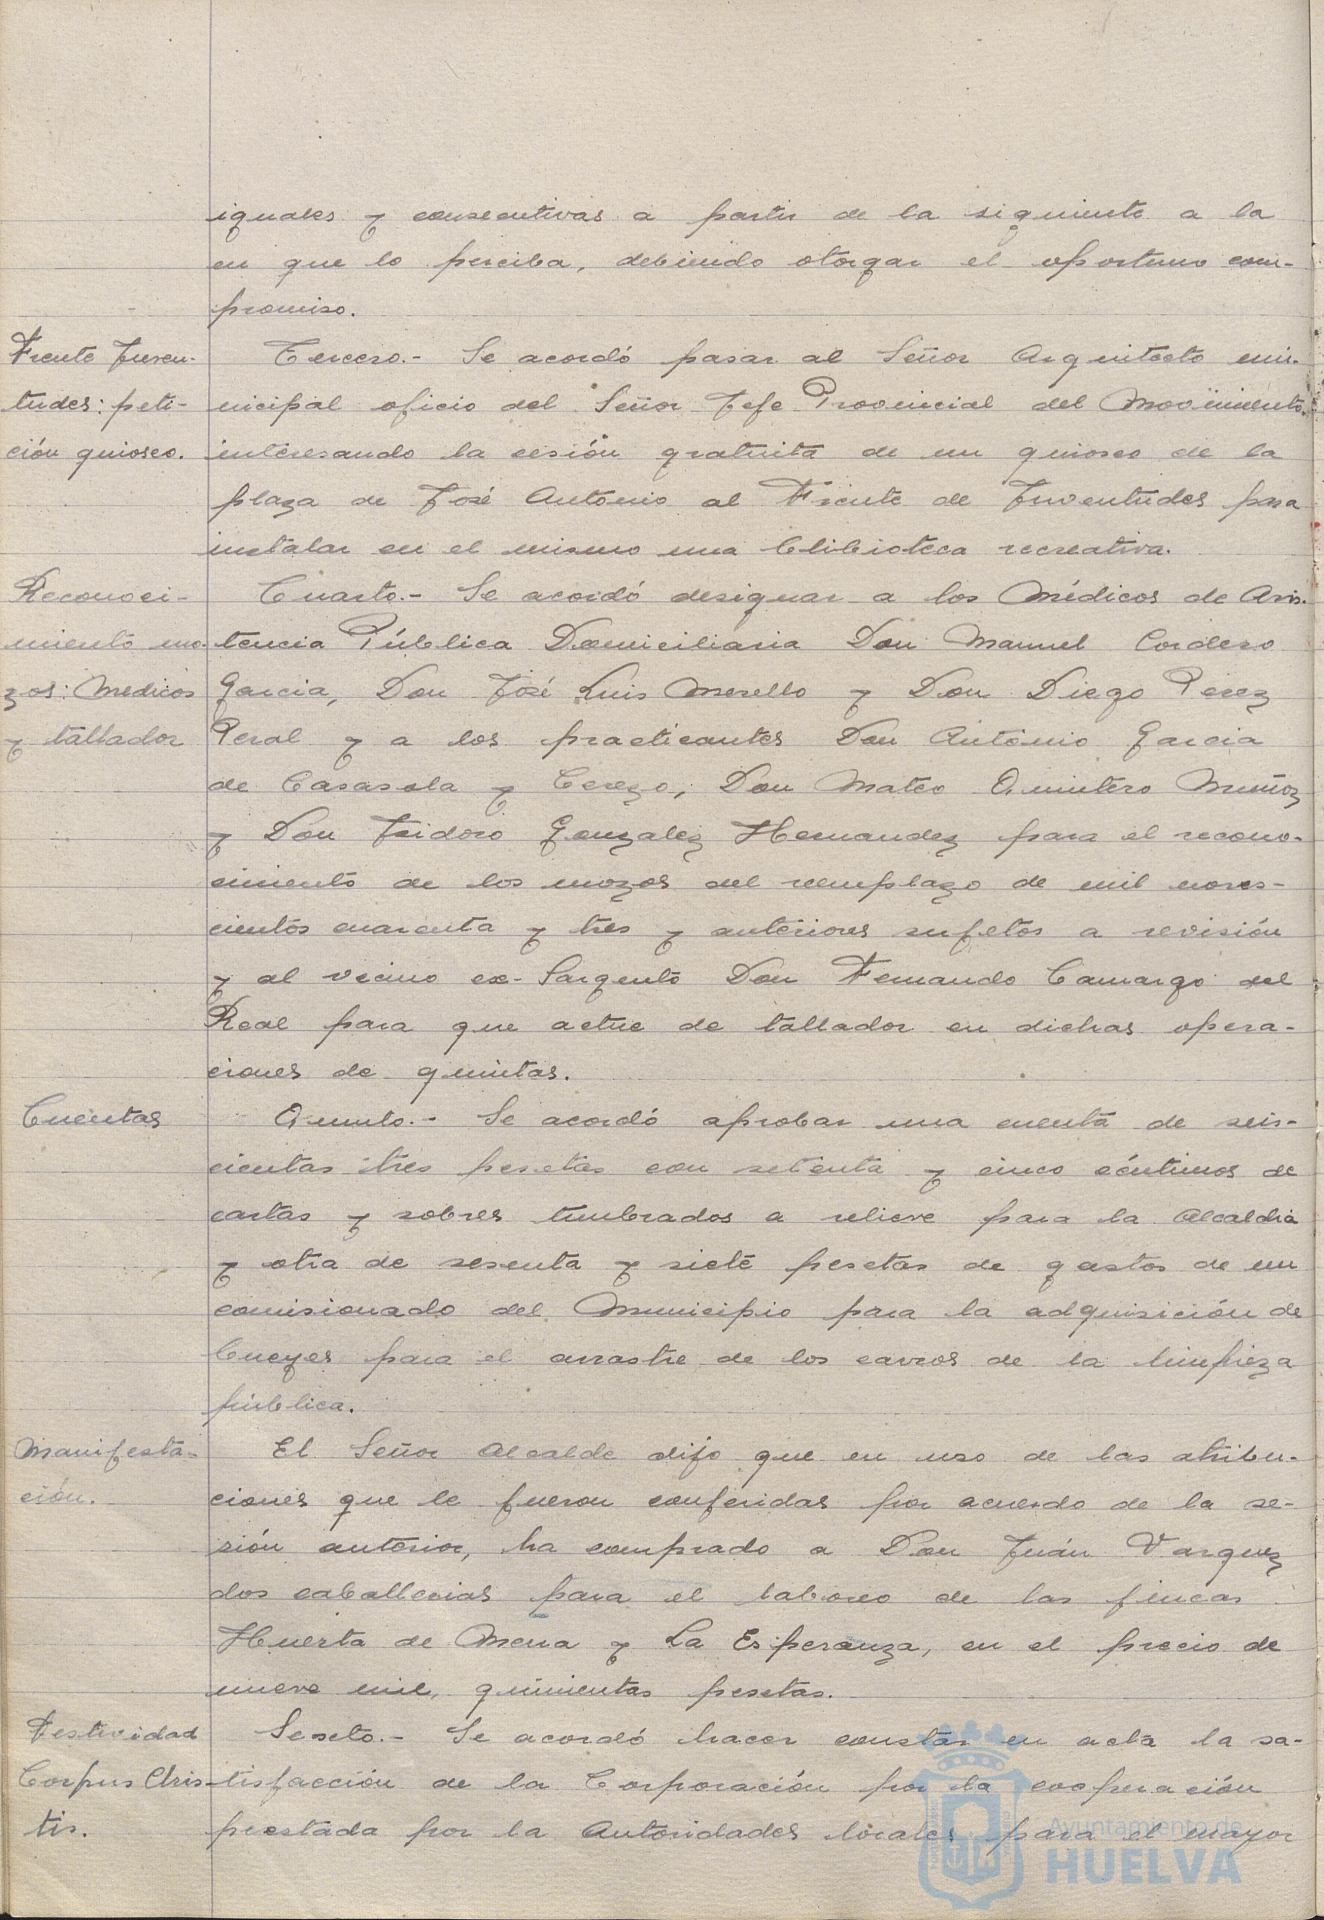 iguales y consecutivas a partir de la siguiente a la
en que lo perciba, debiendo otorgar el oportuno com-
promiso.
Frente Juven-
tudes: peti-
ción quiosco.
Tercero.- Se acordó pasar al Señor Arquitecto mu-
nicipal oficio del Señor Jefe Provincial del Movimiento,
interesando la cesión gratuita de un quiosco de la
plaza de José Antonio al Frente de Juventudes para
instalar en el mismo una biblioteca recreativa.
Reconoci-
miento mo-
zos: Medicos
y tallador
Cuarto.- Se acordó designar a los Médicos de Asis-
tencia Pública Domiciliaria Don Manuel Cordero
Garcia, Don José Luis Merello y Don Diego Perez
Peral y a los practicantes Don Antonio Garcia
de Casasola y Cerezo, Don Mateo Quintero Muñoz
y Don Isidoro Gonzalez Hernandez para el recono-
cimiento de los mozos del reemplazo de mil noves-
cientos cuarenta y tres y anteriores sujetos a revisión
y al vecino ex-Sargento Don Fernando Camargo del
Real para que actue de tallador en dichas opera-
ciones de quintas.
Cuentas
Quinto.- Se acordó aprobar una cuenta de seis-
cientas tres pesetas con setenta y cinco céntimos de
cartas y sobres timbrados a relieve para la Alcaldia
y otra de sesenta y siete pesetas de gastos de un
comisionado del Municipio para la adquisición de
bueyes para el arrastre de los carros de la limpieza
pública.
Manifesta-
ción.
El Señor Alcalde dijo que en uso de las atribu-
ciones que le fueron conferidas por acuerdo de la se-
sión anterior, ha comprado a Don Juán Vazquez
dos caballerias para el laboreo de las fincas
Huerta de Mena y La Esperanza, en el precio de
nueve mil, quinientas pesetas.
Festividad
Corpus Chris-
tis.
Sexto.- Se acordó hacer constar en acta la sa-
tisfacción de la Corporación por la cooperación
prestada por la Autoridades locales para el mayor
Ayuntamiento de
HUELVA